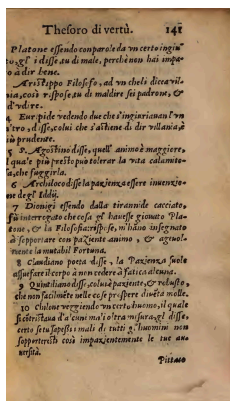 Thesoro di vertù. 141
Platone essendo con parole da vn certo ingiu
to, gl' i disse, tu di male, perche non hai impa-
o a dir bene.
Aristippo Filosofo, ad vn che li diceua vil-
nia, così rispose, tu di maldire sei padrone, &
d'vdire.
4 Euripide vedendo due che s'ingiuriauan l'vn
l'tro, disse, colui che s'astiene di dir villania, è
più prudente.
5 S. Agostino disse, quell' animo è maggiore,
l qua'e più presto può tolerar la vita calamito-
sa, che fuggirla.
6 Archiloco disse la pazienza essere inuenzio-
ne de gl' Iddij.
7 Dionigi essendo dalla tirannide cacciato,
fù interrogato che cosa gl' hauesse giouato Pla-
tone, & la Filosofia: rispose, m'hano insegnato
à sopportare con paziente animo, & ageuol-
mente la mutabil Fortuna.
8 Claudiano poeta disse, la Pazienza suole
assuefare il corpo à non cedere à fatica alcuna.
9 Quintiliano disse, colui è paziente, & robusto,
che non facilmēte nelle cose prospere diuēta molle.
10 Chilone veggiendo vn certo huomo, il quale
si cōtristaua d'a'cuni ma'i o'tra misura, gl' disse,
certo se tu sapessi i mali di tutti g'l huomini non
sopporteresti così impazientemente le tue au
uersità.
Pittaco